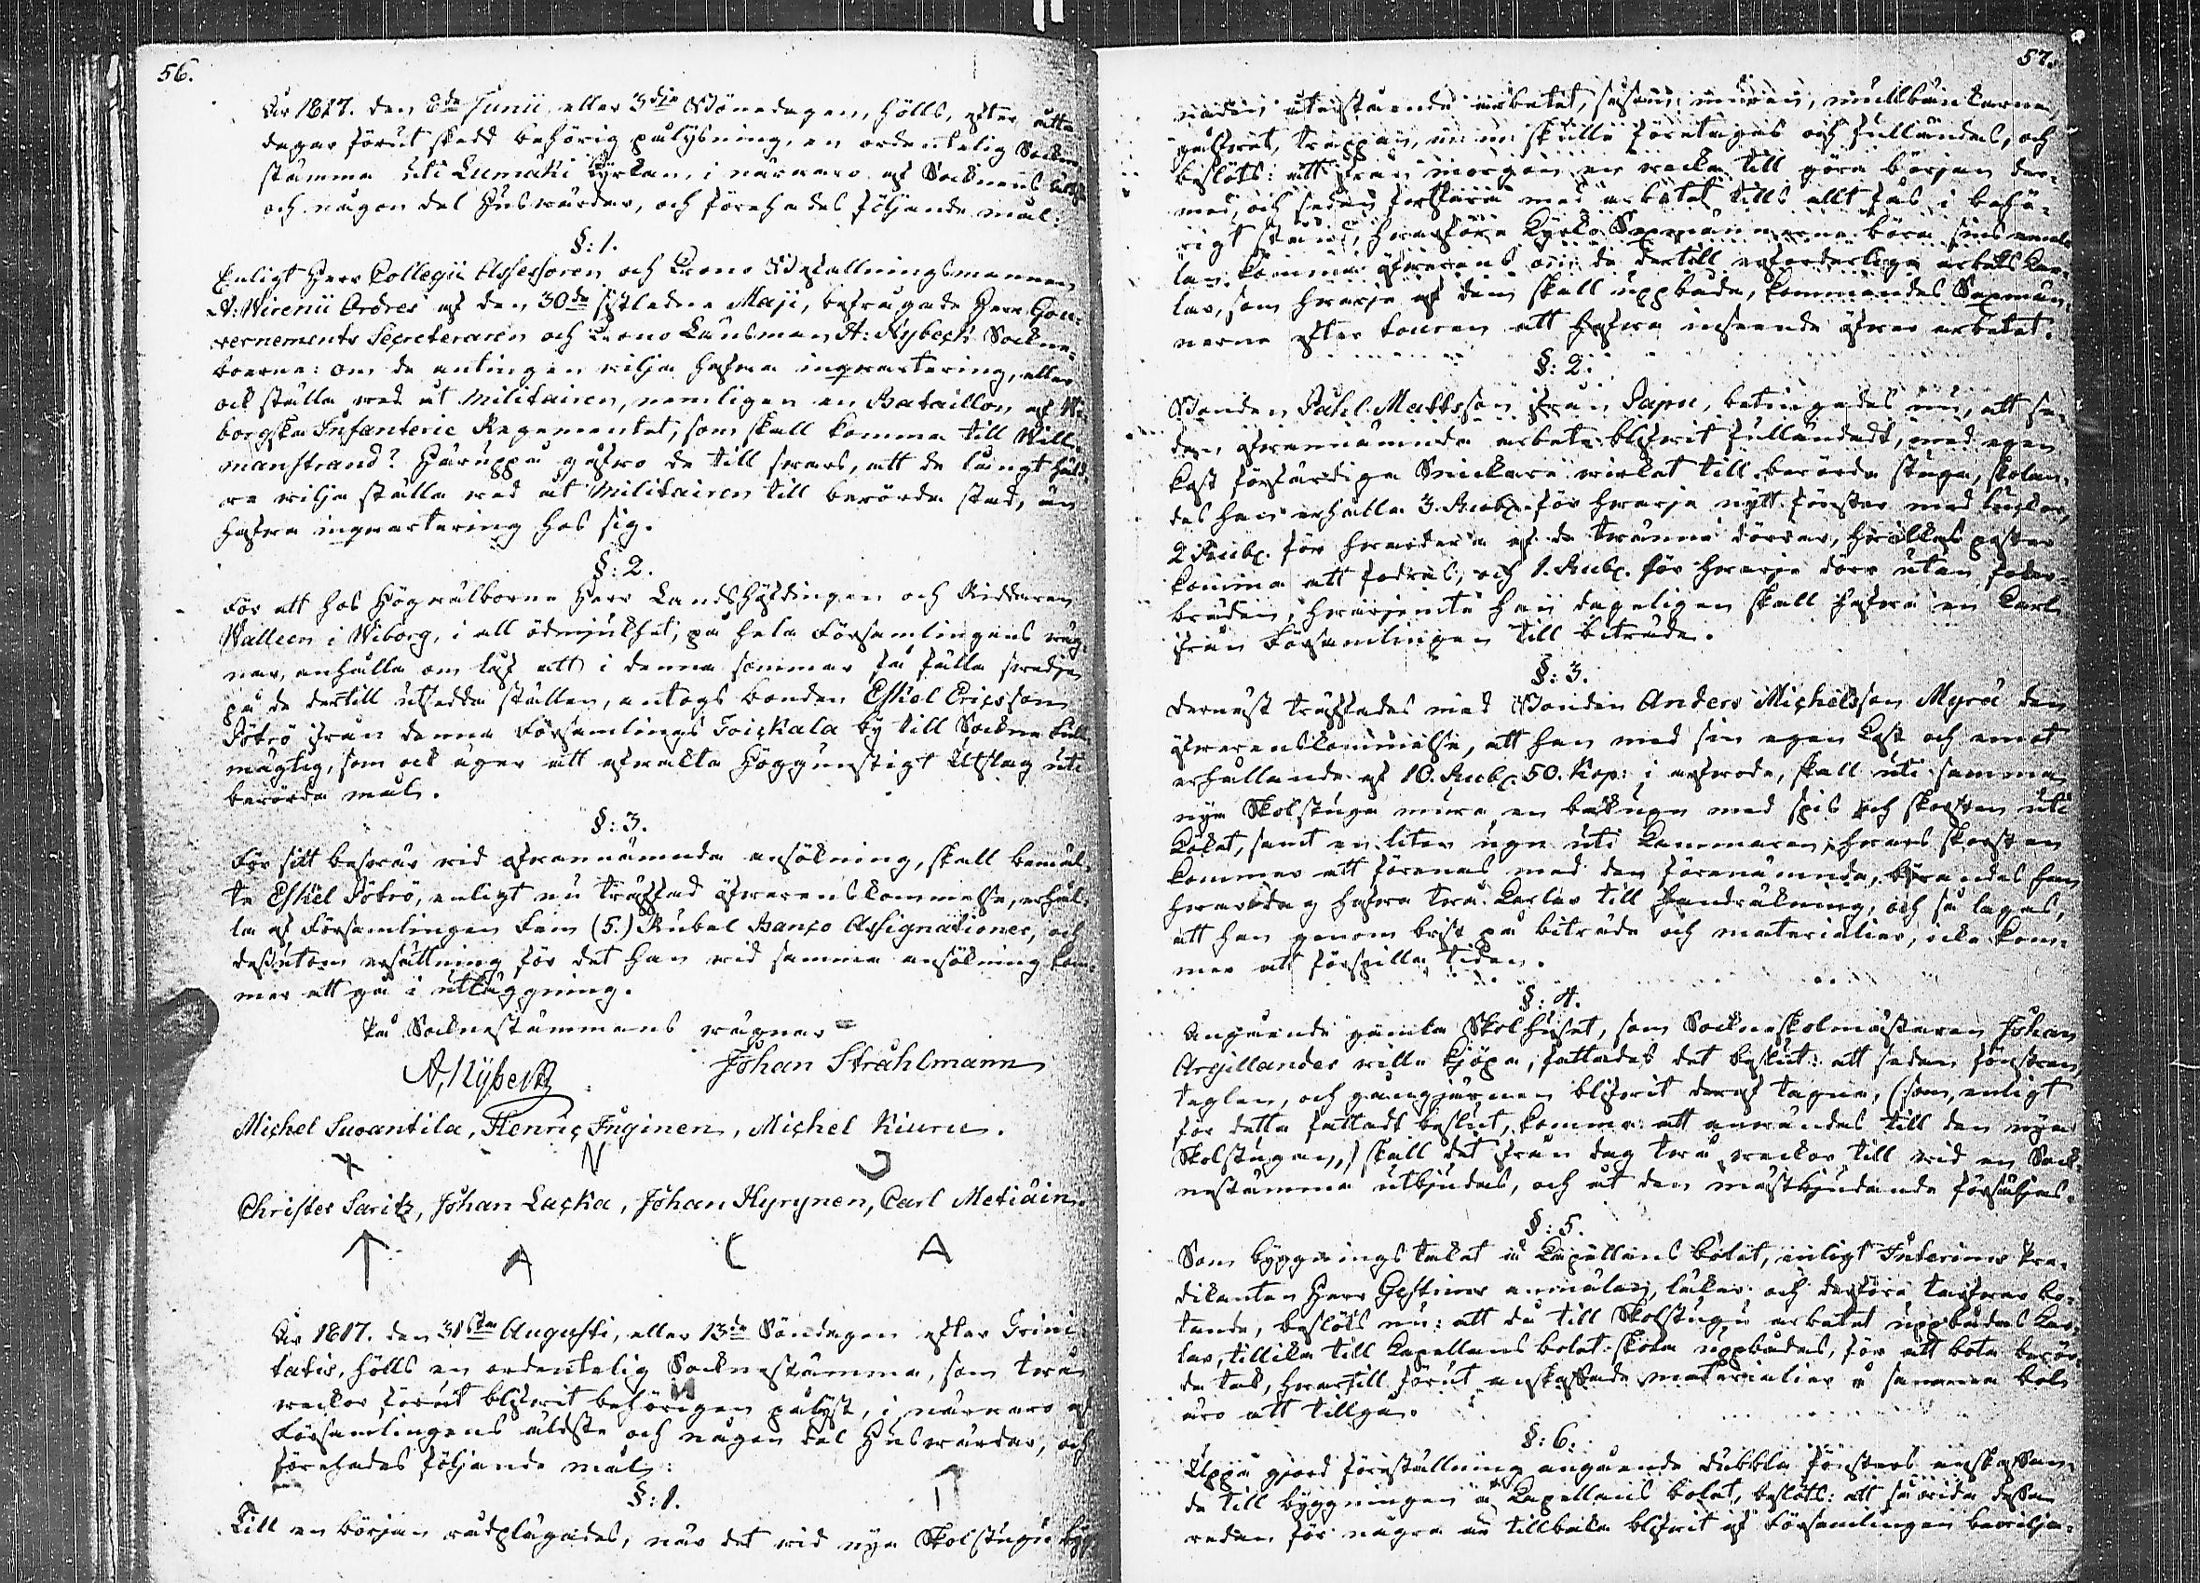 56.
År 1817. den 8de Junii, eller 3dje Bönedagen, hölls, efter åtta
dagar förut skedd behörig pålysning, en ordentelig Sockne-
stämma uti Lumäki kyrkan, i närvaro af Socknens äldste
och någon del Huswärdar, och förehades följande mål:
§: 1.
Enligt Herr Collegii Assessoren och Krono Befallningsmannen
A: Wirenii Ordres af den 30de sistledne Maji, befrågade Herr Gou-
vernements Secreteraren och Krono Länsman A: Nyberg Sockne-
boerne: om de antingen vilja hafva inqvartering, eller
ock ställa ved åt Militairen, nemligen en Bataillon af Wi-
borgska Infanterie Regementet, som skall komma till Will-
manstrand? Häruppå gåfvo de till svars, att de långt häld-
re vilja ställa ved åt Militairen till berörde stad, än
hafva inqvartering hos sig.
§: 2.
För att hos Högvälborne Herr Landshöfdingen och Riddaren
Walleen i Wiborg, i all ödmjukhet, på hela Församlingens väg-
nar, anhålla om lof att i denna sommar få fälla svedje
på de dertill utsedda ställen, antogs bonden Eskel Ericsson
Pöyrö ifrån denna Församlings Toickala by till Sockne full-
mägtig, som ock äger att afvakta Höggunstigt Utslag uti
berörde mål.
§: 3.
För sitt besvär vid ofvannämnde ansökning, skall bemäl-
te Eskel Pöyrö, enligt nu träffad öfverenskommelse, erhål-
la af Församlingen Fem (5.) Rubel Banco Assignationer, och
dessutom ersättning för det han vid samma ansökning kom-
mer att gå i utläggning.
På Socknestämmans vägnar
A, Nyberg
Johan Strahlmann
Michel Suvantila, Henric Inginen, Michel Kiuru.
Christer Saritz, Johan Lacka, Johan Hyrynen, Carl Metiäin.
År 1817. den 31sta Augusti, eller 13de Söndagen efter Trini-
tatis, hölls en ordentelig Socknestämma, som två
veckor förut blifvit behörigen pålyst, i närvaro af
Församlingens äldste och någon del Huswärdar, och
förehades följande mål:
§: 1.
Till en början rådplägades, när det vid nya Skolstugu byg-
57.
naden återstående arbetet, såsom muren, mullbänkarne,
golfvet, trappan, m: m: skulle företagas och fulländas, och
beslöts: att ifrån morgon en vecka till göra början der-
med, och sedan fortfara med arbetet tills allt fås i behö-
rigt stånd, hvarföre Kyrko Sexmännerne böra sins emel-
lan komma öfverens om de dertill erforderlige arbets kar-
lar, som hvarje af dem skall uppbåda, kommandes Sexmän-
nerne efter touren att hafva inseende öfver arbetet.
§: 2.
Bonden Pahl Mattsson ifrån Papu, betingades nu, att se-
dan ofvannämnde arbete blifvit fulländadt, med egen
kost förfärdiga Snickare virket till berörde stuga, skolan-
des han erhålla 3. Rub. för hvarje nytt fönster med luckor,
2 Rub. för hvardera af de tvänne dörrar, hvilkas poster
komma att fodras, och 1. Rub. för hvarje dörr utan foder-
bräden, hvarjemte han dageligen skall hafva en karl
ifrån Församlingen till biträde.
§: 3.
Dernäst träffades med Bonden Anders Michelsson Myrä den
öfverenskommelse, att han med sin egen kost och emot
erhållande af 10. Rub. 50. Kop: i arfvode, skall uti samma
nya Skolstuga mura en bakugn med spis och skorsten uti
Köket, samt en liten ugn uti Kammaren, hvars skorsten
kommer att förenas med den förenämnda, börandes han
hvar dag hafva två karlar till handräkning, och så lagas,
att han genom brist på biträde och materialier, icke kom-
mer att förspilla tiden.
§: 4.
Angående gamla Skolhuset, som Sockneskolmästaren Johan
Argillander ville köpa, fattades det beslut: att sedan fönstren,
teglen, och gångjernen blifvit deraf tagne, (som, enligt
för detta fattadt beslut, komma att användas till den nya
Skolstugan,) skall det ifrån dag två veckor till vid en Sock-
nestämma utbjudas, och åt den mästbjudande försäljas.
§: 5.
Som byggnings taket å Kapellans bolet, enligt Interims Pre-
dikanten Herr Gestrins anmälan, läker och derföre tarfvar bo-
tande, beslöts nu: att då till Skolstugu arbetet uppbådas kar-
lar, tillika till Kapellans bolet skola uppbådas, för att bota berör-
de tak, hvartill förut anskaffade materialier å samma bol
äro att tillgå.
§: 6.
Uppå gjord föreställning angående dubbla fönsters anskaffan-
de till byggningen å Kapellans bolet, beslöts: att såvida dessa
redan för några år tillbaka blifvit af Församlingen bevilja-